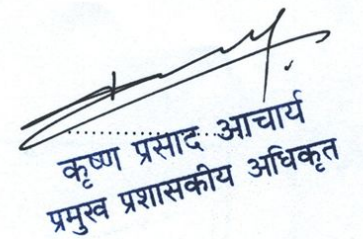 कृष्ण प्रसाद आचार्य
प्रमुख प्रशासकीय अधिकृत